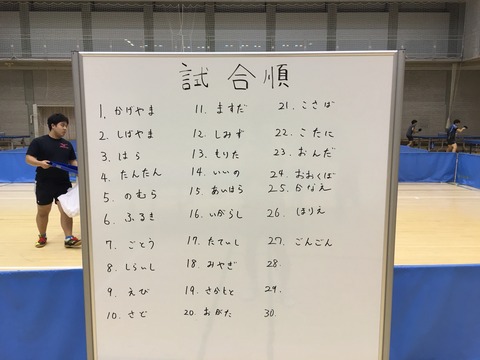 試合順
1. かげやま
2. しばやま
3. はら
4. たんたん
5. のむら
6. ふるき
7. ごとう
8. しらいし
9. えび
10. さど
11. ますだ
12. しみず
13. もりた
14. いいの
15. あいはら
16. いがらし
17. たていし
18. みやぎ
19. さかもと
20. おがた
21. こさば
22. こたに
23. おんだ
24. おおくぼ
25. かなえ
26. ほりえ
27. ごんごん
28.
29.
30.